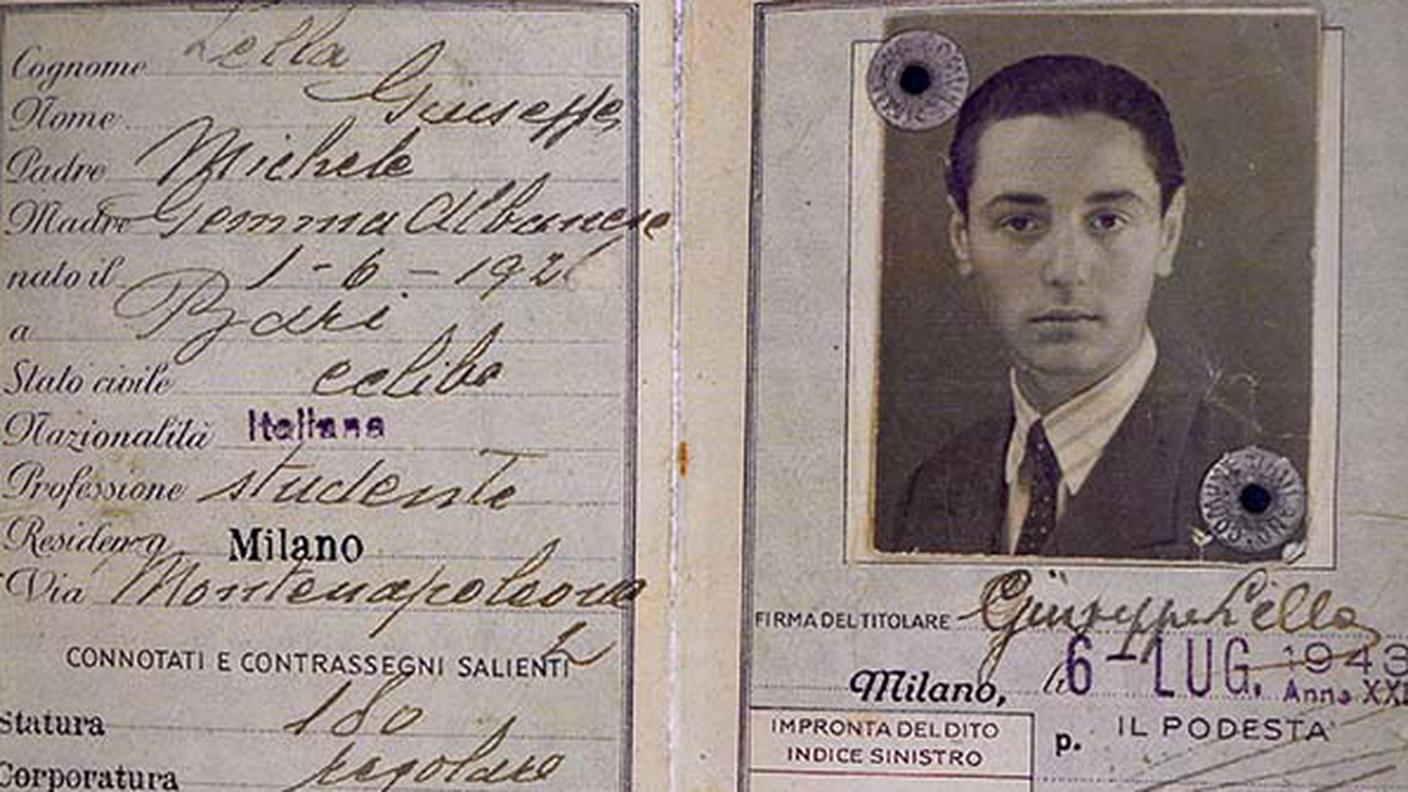 Cognome Lella
Nome Giuseppe
Padre Michele
Madre Gemma Albanese
nato il 1-6-192
a Bari
Stato civile celibe
Nazionalità Italiana
Professione studente
Residenza Milano
Via Montenapoleone
2
CONNOTATI E CONTRASSEGNI SALIENTI
Statura 180
Corporatura regolare
FIRMA DEL TITOLARE Giuseppe Lella
Milano, li 6-LUG. 1943
Anno XXI
IMPRONTA DEL DITO
INDICE SINISTRO
p. IL PODESTA'